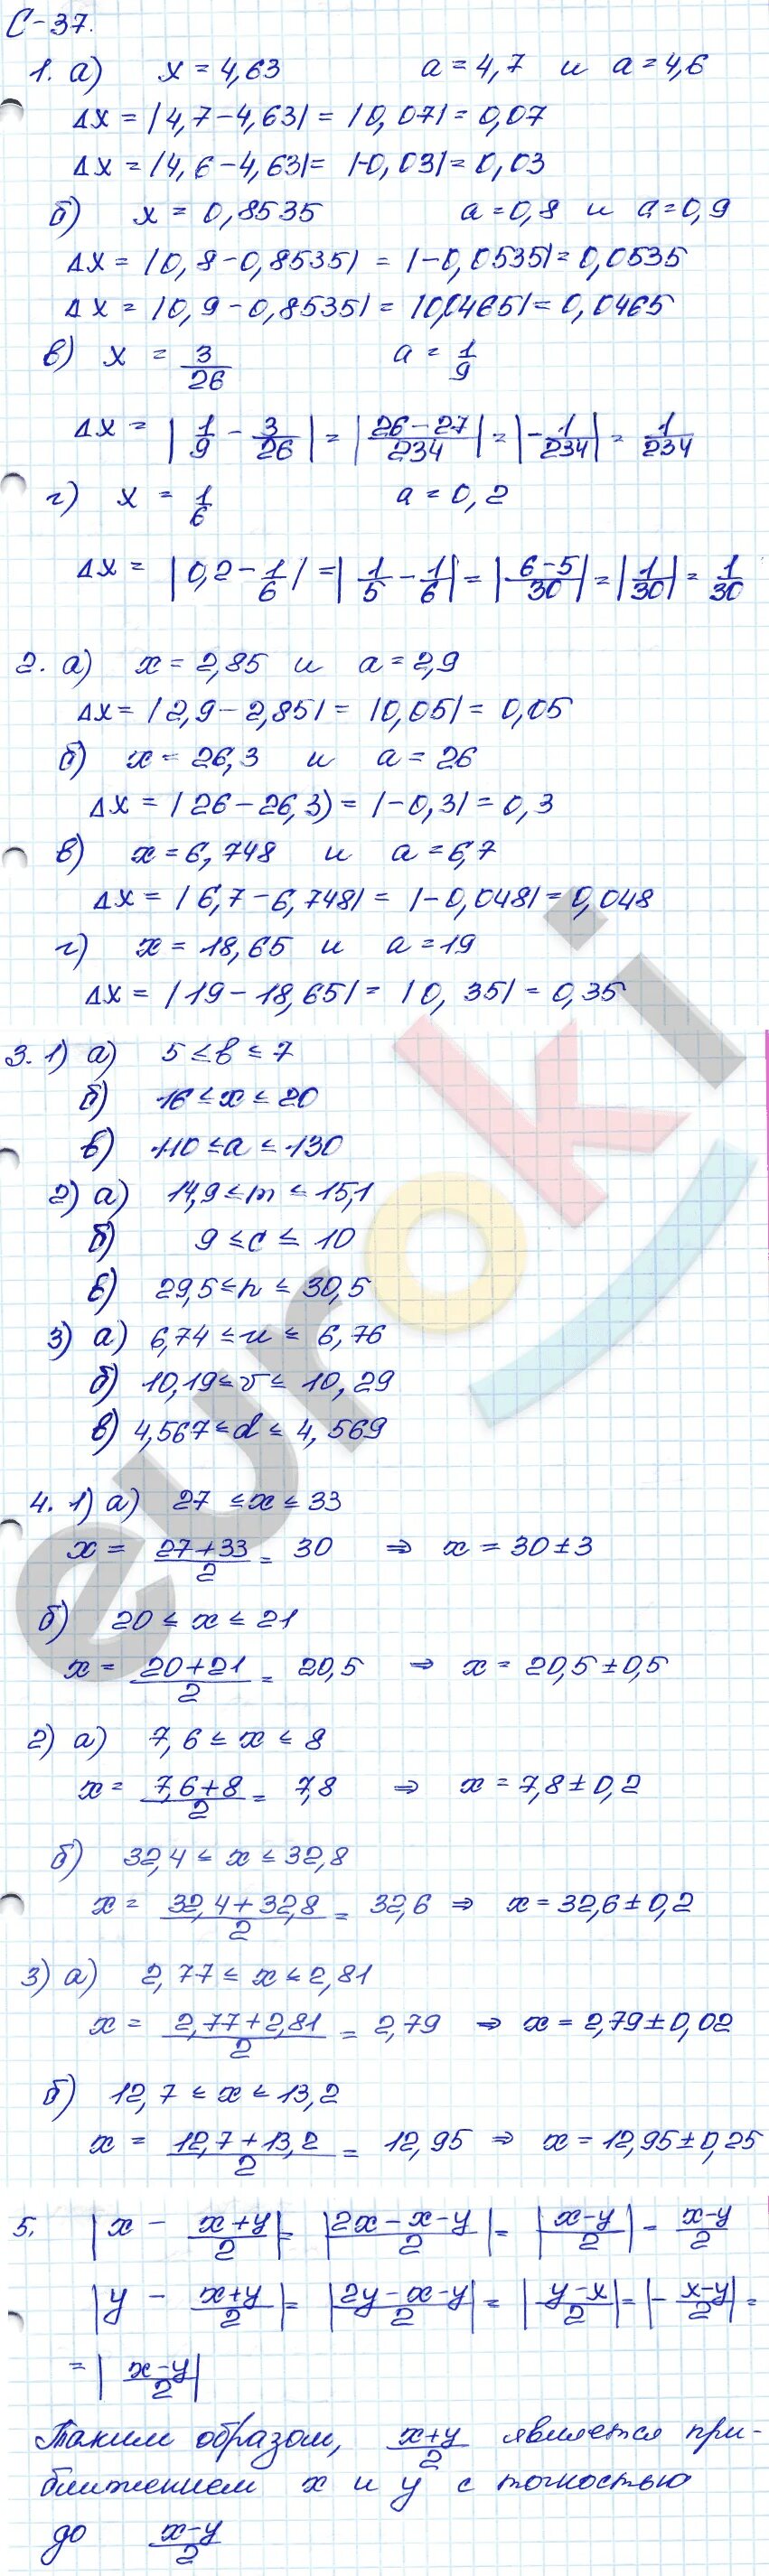 С-37.
1. а) x = 4,63 a = 4,7 и a = 4,6
Δx = |4,7-4,63| = |0,07| = 0,07
Δx = |4,6-4,63| = |-0,03| = 0,03
б) x = 0,8535 a = 0,8 и a = 0,9
Δx = |0,8-0,8535| = |-0,0535| = 0,0535
Δx = |0,9-0,8535| = |0,0465| = 0,0465
в) x = 3/26 a = 1/9
Δx = |1/9 - 3/26| = |(26-27)/234| = |-1/234| = 1/234
г) x = 1/6 a = 0,2
Δx = |0,2 - 1/6| = |1/5 - 1/6| = |(6-5)/30| = |1/30| = 1/30
2. а) x = 2,85 и a = 2,9
Δx = |2,9-2,85| = |0,05| = 0,05
б) x = 26,3 и a = 26
Δx = |26-26,3) = |-0,3| = 0,3
в) x = 6,748 и a = 6,7
Δx = |6,7-6,748| = |-0,048| = 0,048
г) x = 18,65 и a = 19
Δx = |19-18,65| = |0,35| = 0,35
3. 1) а) 5 ≤ b ≤ 7
б) 16 ≤ x ≤ 20
в) 110 ≤ a ≤ 130
2) а) 14,9 ≤ m ≤ 15,1
б) 9 ≤ c ≤ 10
в) 29,5 ≤ n ≤ 30,5
3) а) 6,74 ≤ u ≤ 6,76
б) 10,19 ≤ v ≤ 10,29
в) 4,567 ≤ d ≤ 4,569
4. 1) а) 27 ≤ x ≤ 33
x = (27+33)/2 = 30 ⇒ x = 30 ± 3
б) 20 ≤ x ≤ 21
x = (20+21)/2 = 20,5 ⇒ x = 20,5 ± 0,5
2) а) 7,6 ≤ x ≤ 8
x = (7,6+8)/2 = 7,8 ⇒ x = 7,8 ± 0,2
б) 32,4 ≤ x ≤ 32,8
x = (32,4+32,8)/2 = 32,6 ⇒ x = 32,6 ± 0,2
3) а) 2,77 ≤ x ≤ 2,81
x = (2,77+2,81)/2 = 2,79 ⇒ x = 2,79 ± 0,02
б) 12,7 ≤ x ≤ 13,2
x = (12,7+13,2)/2 = 12,95 ⇒ x = 12,95 ± 0,25
5. |x - (x+y)/2| = |(2x-x-y)/2| = |(x-y)/2| = (x-y)/2
|y - (x+y)/2| = |(2y-x-y)/2| = |(y-x)/2| = |-(x-y)/2| =
= |(x-y)/2|
Таким образом, (x+y)/2 является при-
ближением x и y с точностью
до (x-y)/2
euroki